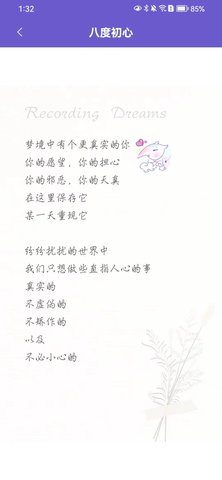 1:32
85%
八度初心
Recording Dreams
梦境中有个更真实的你
你的愿望，你的担心
你的邪恶，你的天真
在这里保存它
某一天重现它
纷纷扰扰的世界中
我们只想做些直指人心的事
真实的
不虚伪的
不矫作的
以及
不必小心的